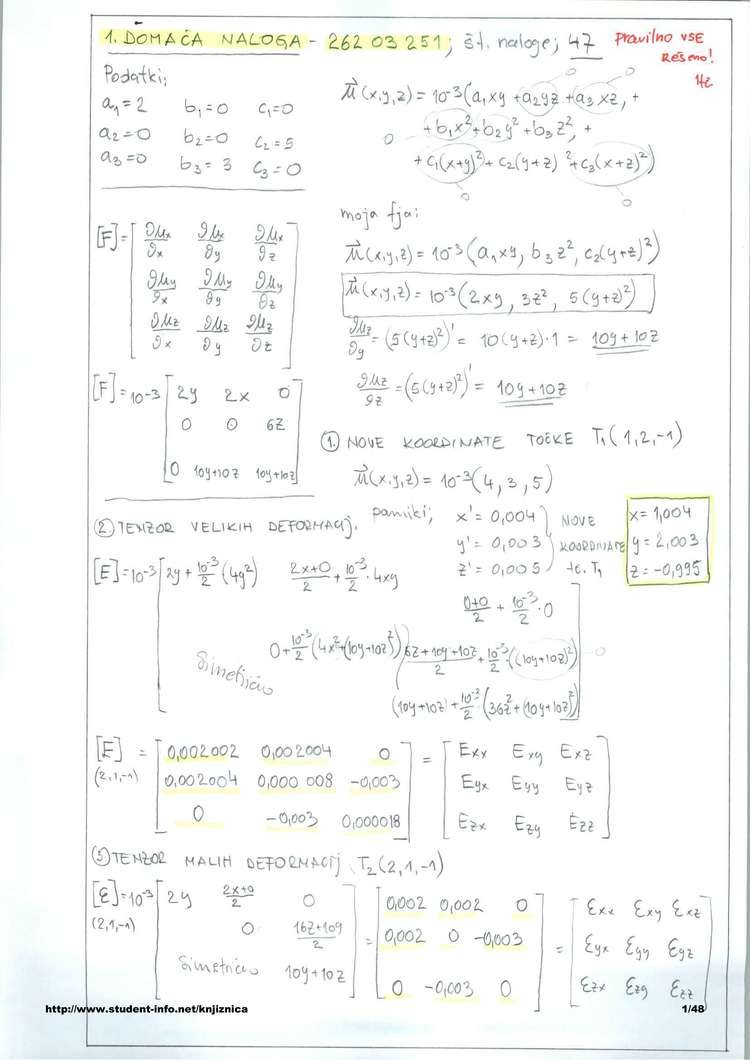 1. DOMAČA NALOGA - 262 03 251; št. naloge; 47
Pravilno VSE
Rešeno!
Podatki;
a₁=2 b₁=0 c₁=0
a₂=0 b₂=0 c₂=5
a₃=0 b₃=3 c₃=0
u⃗(x,y,z)=10⁻³(a₁xy+a₂yz+a₃xz, +
0
0
+b₁x²+b₂y²+b₃z², +
0
+c₁(x+y)²+c₂(y+z)²+c₃(x+z)²)
0
0
moja fja:
u⃗(x,y,z)=10⁻³(a₁xy, b₃z², c₂(y+z)²)
u⃗(x,y,z)=10⁻³(2xy, 3z², 5(y+z)²)
[F]= [∂ux/∂x ∂ux/∂y ∂ux/∂z
∂uy/∂x ∂uy/∂y ∂uy/∂z
∂uz/∂x ∂uz/∂y ∂uz/∂z]
∂uz/∂y=(5(y+z)²)'=10(y+z)·1=10y+10z
∂uz/∂z=(5(y+z)²)'=10y+10z
[F]=10⁻³ [2y 2x 0
0 0 6z
0 10y+10z 10y+10z]
① NOVE KOORDINATE TOČKE T₁(1,2,-1)
u⃗(x,y,z)=10⁻³(4,3,5)
pomiki; x'=0,004
y'=0,003
z'=0,005
NOVE
KOORDINATE
tč. T₁
x=1,004
y=2,003
z=-0,995
② TENZOR VELIKIH DEFORMACIJ.
[E]=10⁻³ [2y+10⁻³/2(4y²) (2x+0)/2+10⁻³/2·4xy (0+0)/2+10⁻³/2·0
0+10⁻³/2(4x²+(10y+10z)²) (6z+10y+10z)/2+10⁻³/2·((10y+10z)²) 0
Simetrično
(10y+10z)+10⁻³/2(36z²+(10y+10z)²)]
[E] (2,1,-1) = [0,002002 0,002004 0
0,002004 0,000 008 -0,003
0 -0,003 0,000018]
= [Exx Exy Exz
Eyx Eyy Eyz
Ezx Ezy Ezz]
③ TENZOR MALIH DEFORMACIJ, T₂(2,1,-1)
[ε]=10⁻³ (2,1,-1) [2y (2x+0)/2 0
0 (16z+10y)/2
Simetrično 10y+10z]
= [0,002 0,002 0
0,002 0 -0,003
0 -0,003 0]
= [εxx εxy εxz
εyx εyy εyz
εzx εzy εzz]
http://www.student-info.net/knjiznica
1/48